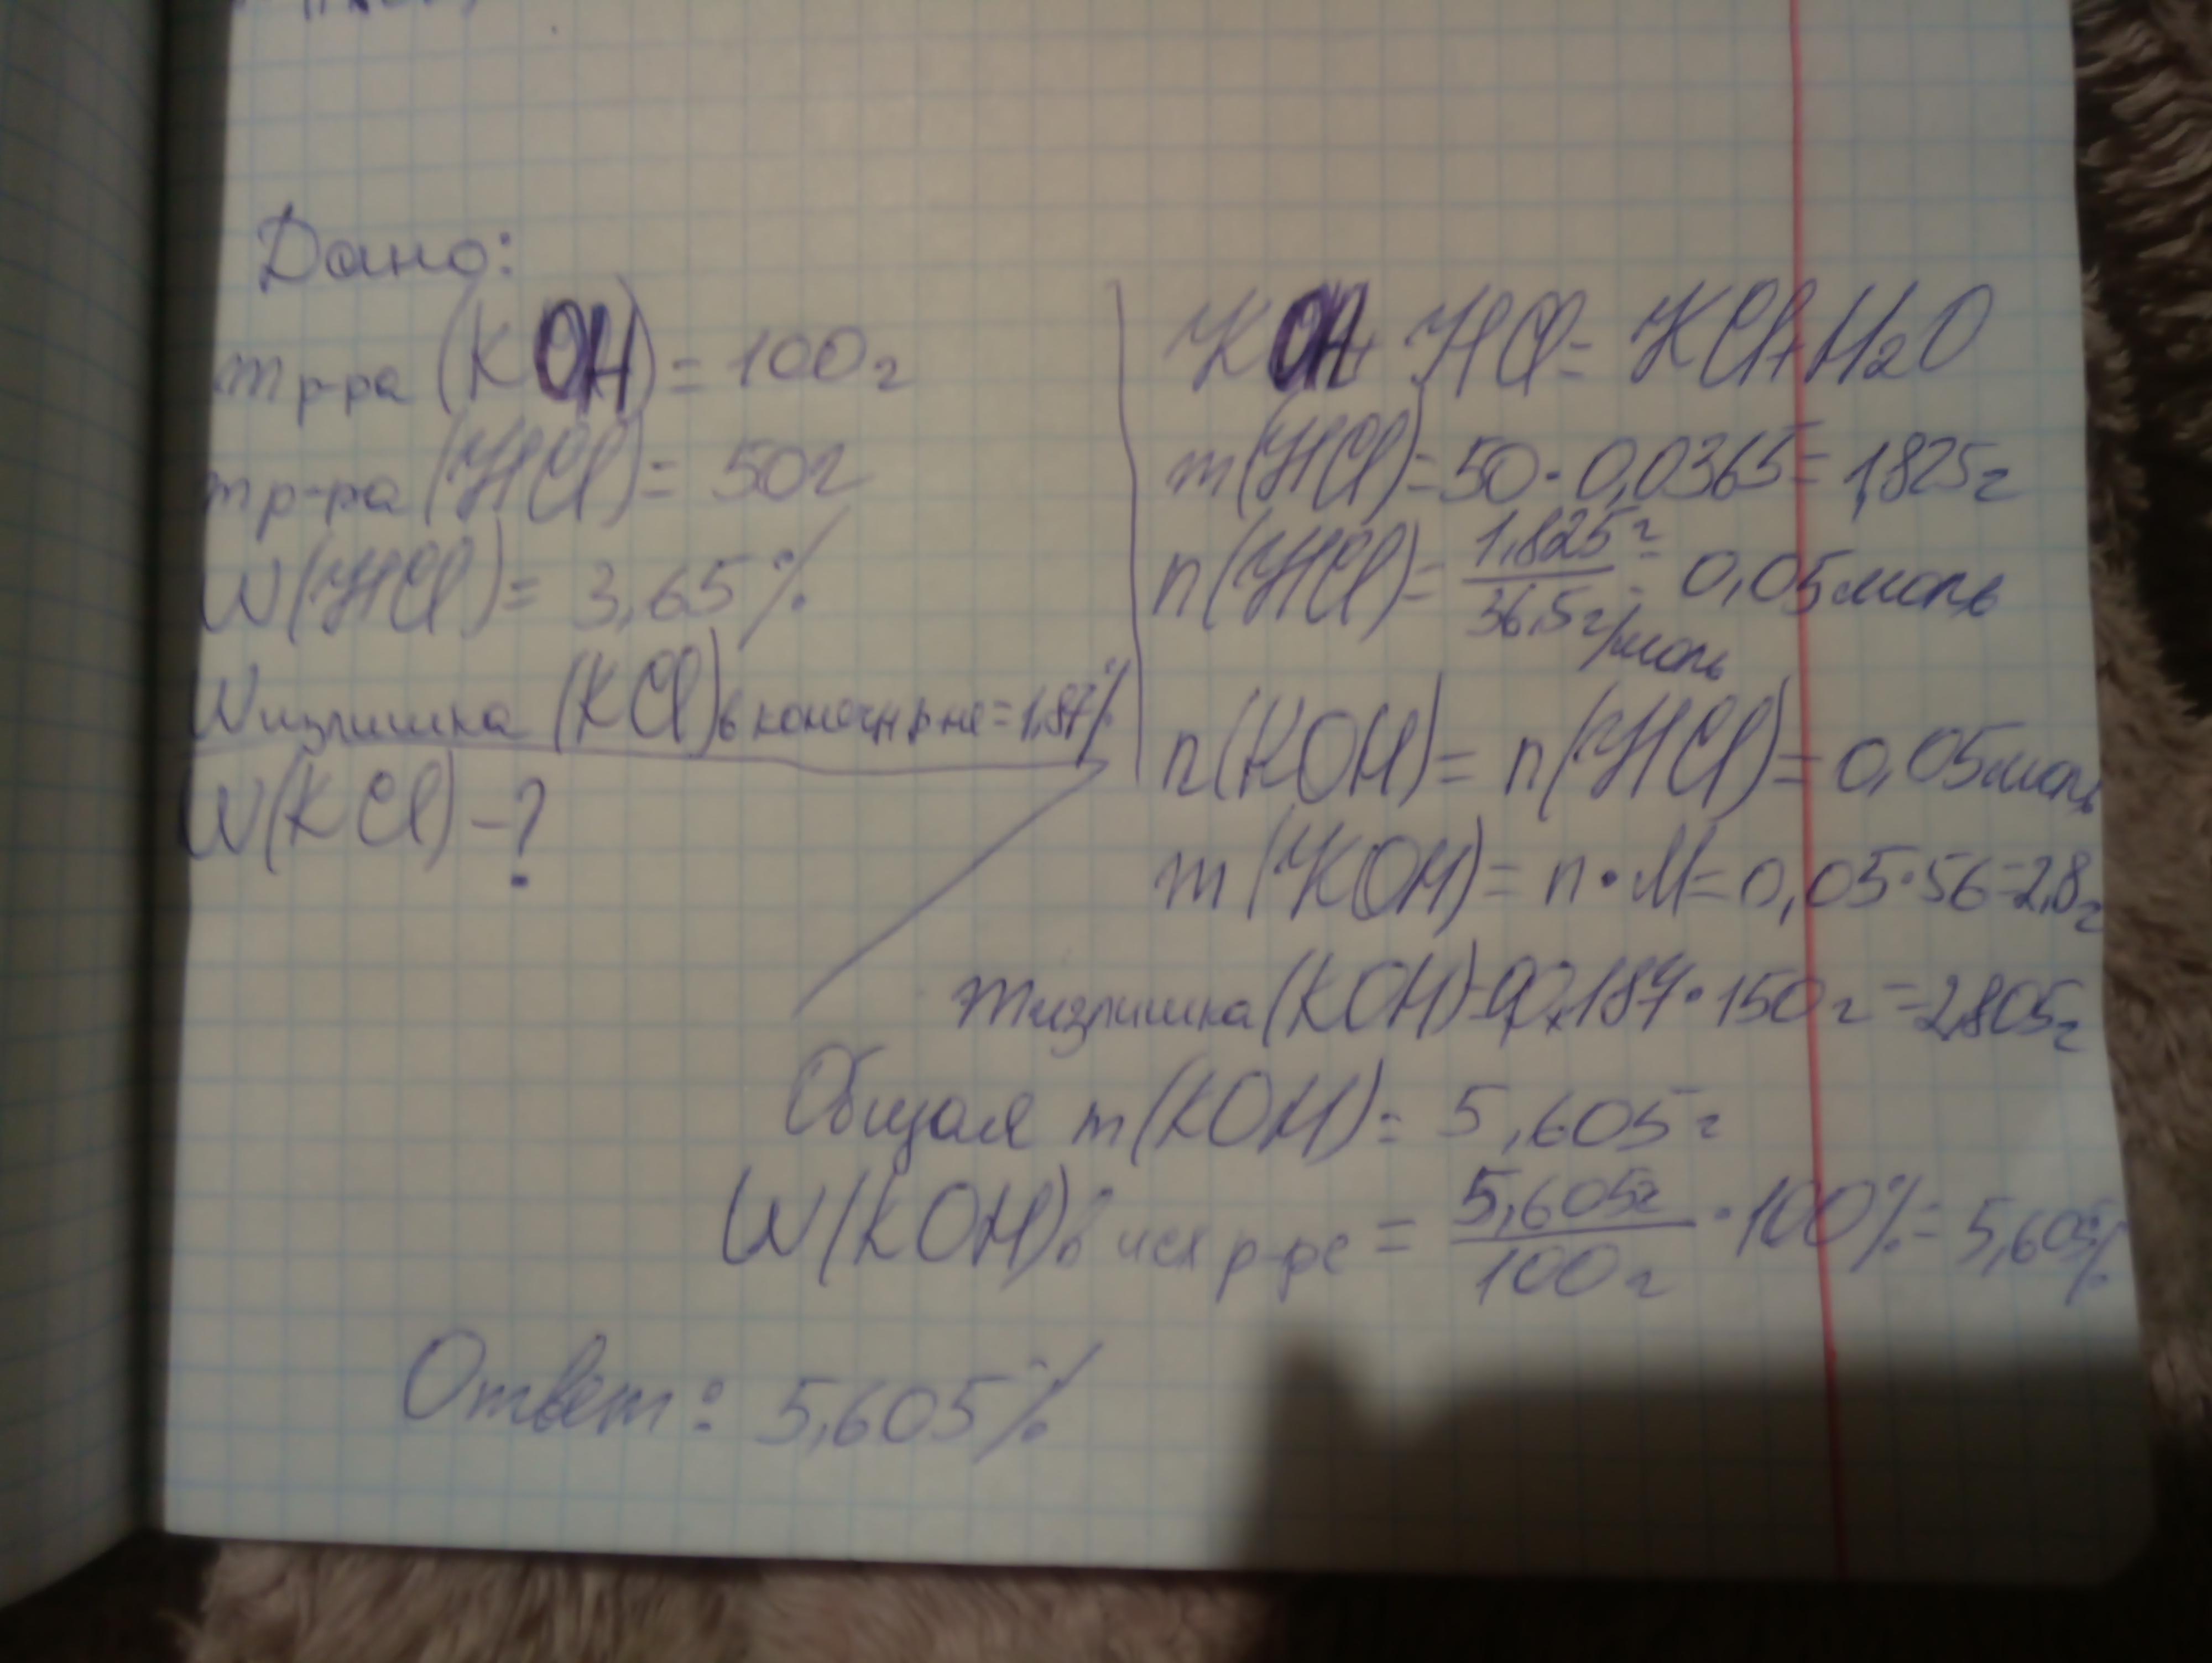 Дано:
m р-ра (KOH) = 100г
m р-ра (HCl) = 50г
W(HCl) = 3,65%
W излишка (KCl) в конечн р-не = 1,87%
W(KCl) - ?
KOH + HCl = KCl + H2O
m(HCl) = 50 · 0,0365 = 1,825г
n(HCl) = 1,825г / 36,5г/моль = 0,05моль
n(KOH) = n(HCl) = 0,05моль
m(KOH) = n · M = 0,05 · 56 = 2,8г
m излишка (KOH) = 187 · 150г = 2,805г
Общая m(KOH) = 5,605г
W(KOH) в исх р-ре = 5,605г / 100г · 100% = 5,605%
Ответ: 5,605%